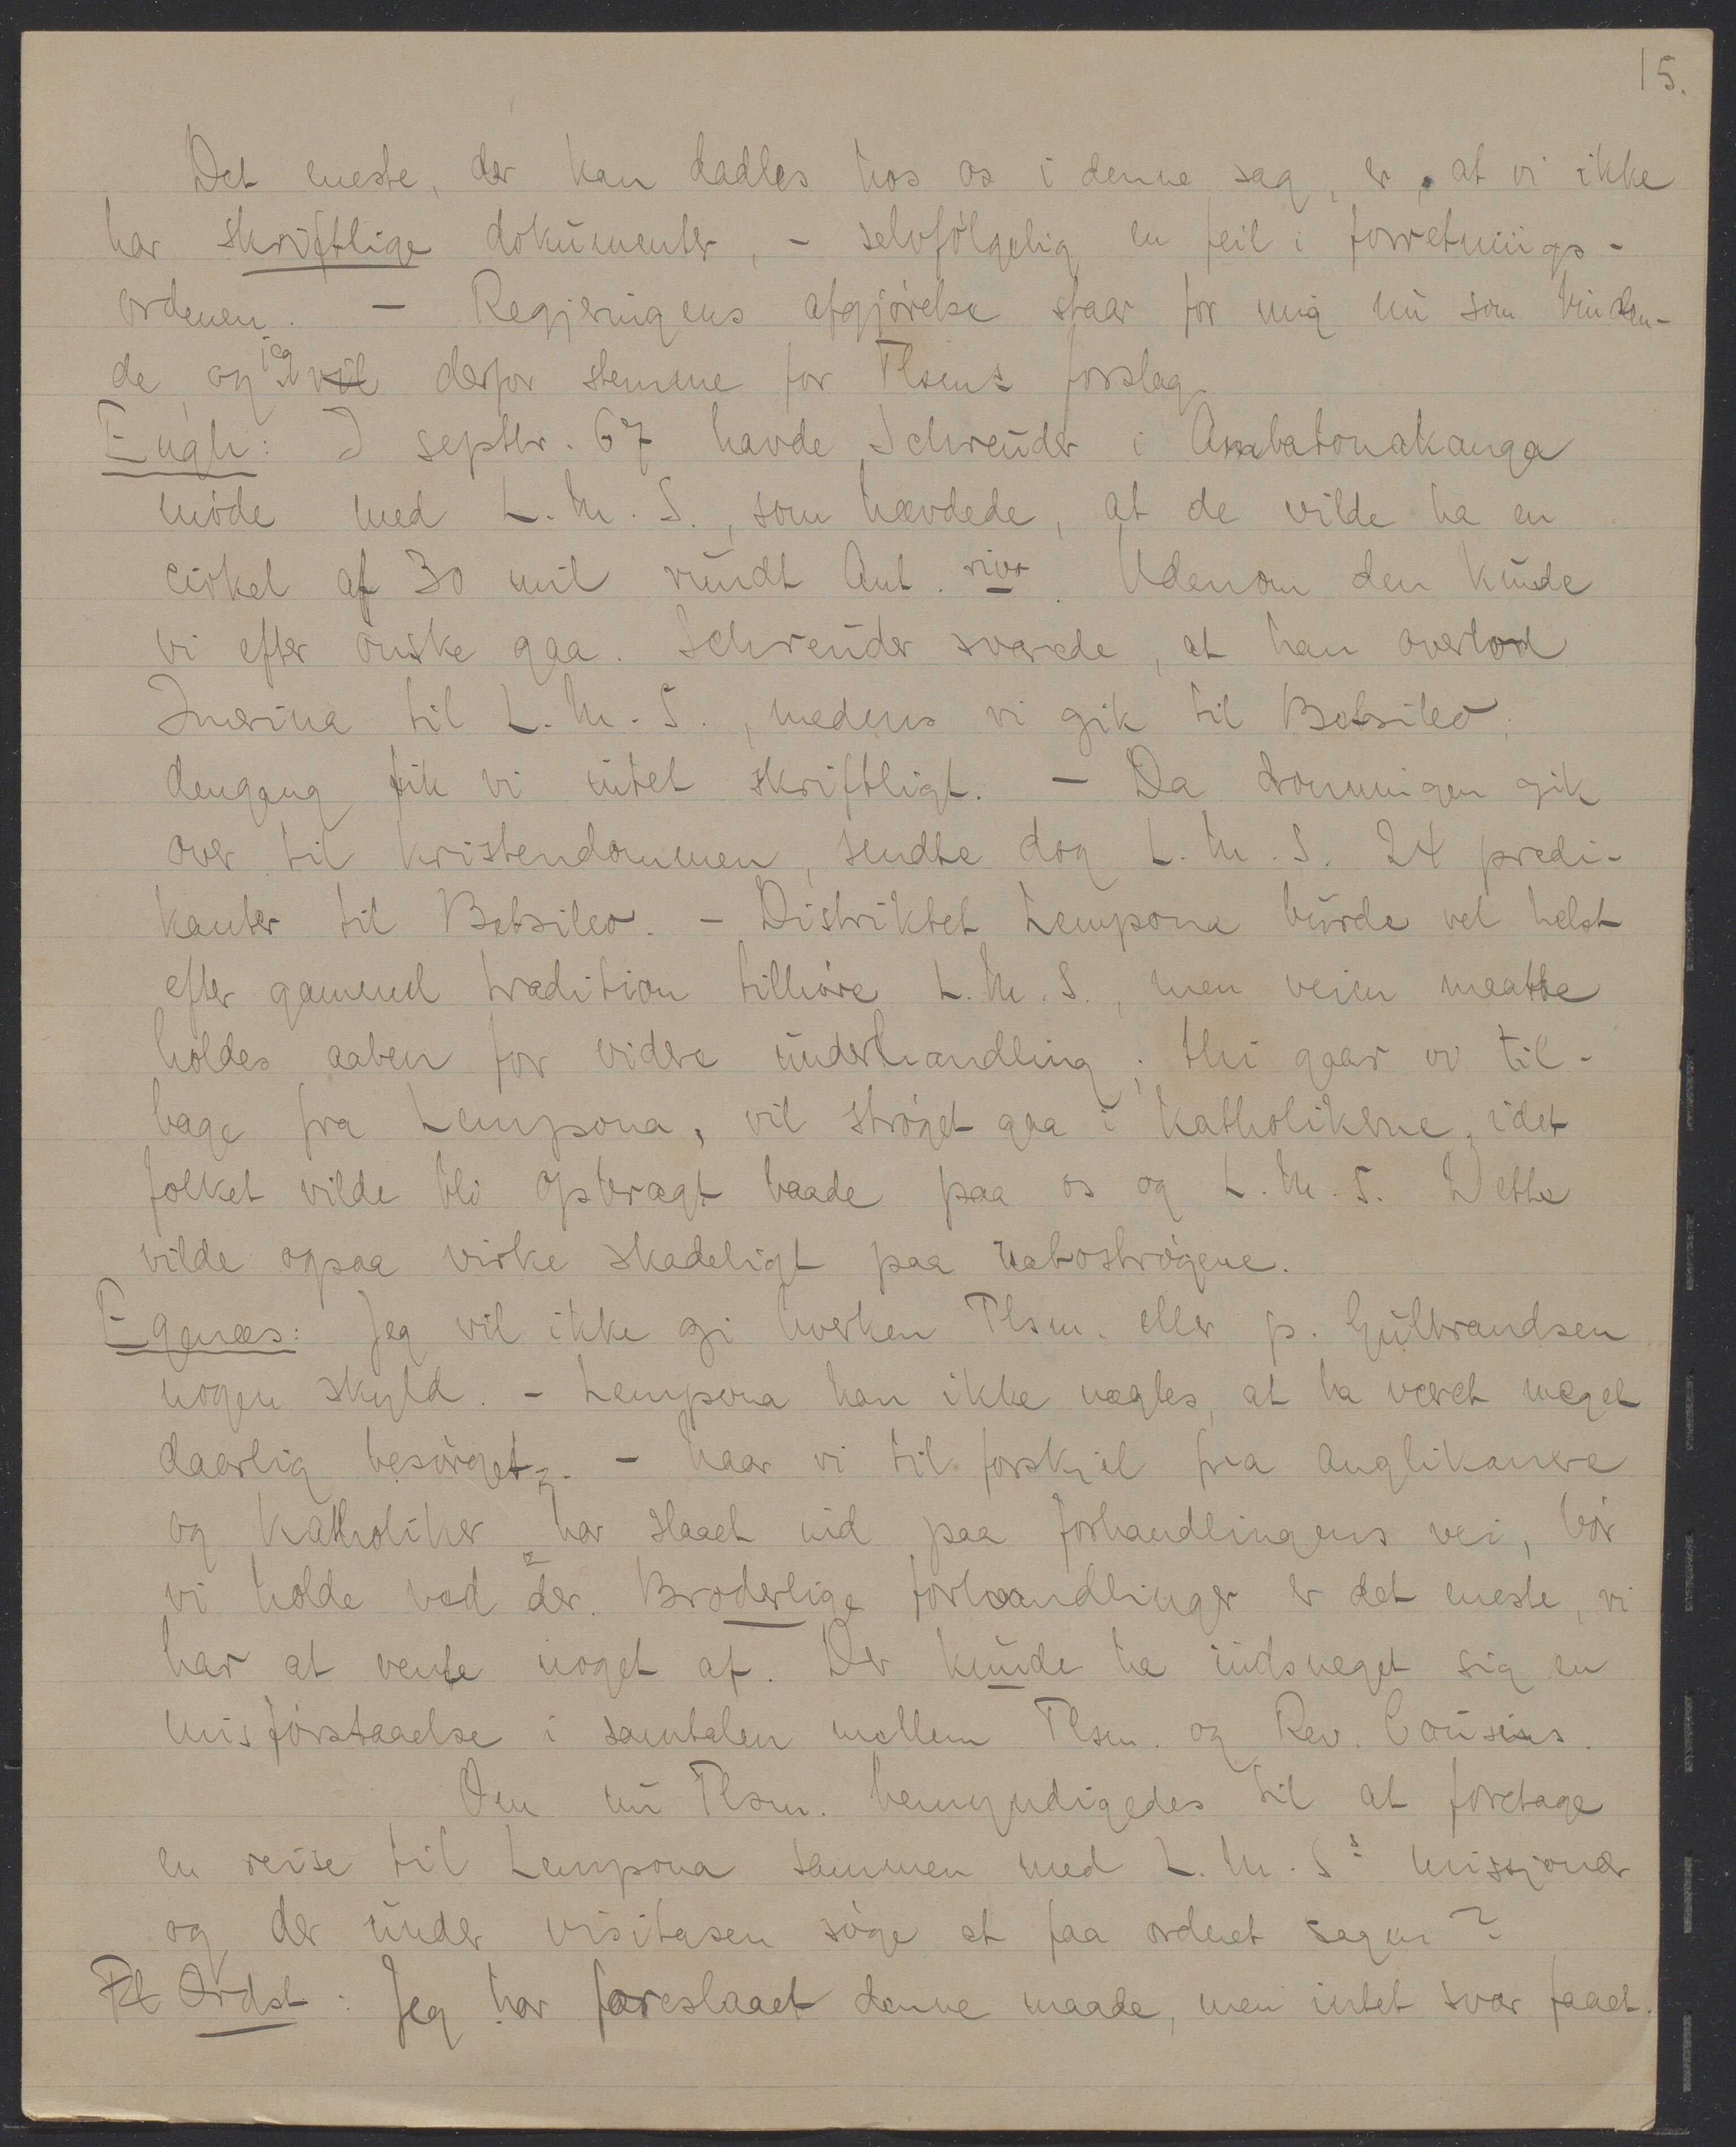 15.
Det eneste, der kan dadles hos os i denne sag, er, at vi ikke
har skriftlige dokumenter, - selvfølgelig en feil i forretnings-
ordenen. - Regjeringens afgjørelse staar for mig nu som binden-
de, og jeg vil derfor stemme for Tlsms forslag.
Engh: I septbr. 67 havde Schreuder i Ambatonakanga
møde med L.M.S., som hævdede, at de vilde ha en
cirkel af 30 mil rundt Ant. rivo. Udenom den kunde
vi efter ønske gaa. Schreuder svarede, at han overlod
Imerina til L.M.S., medens vi gik til Betsileo;
dengang fik vi intet skriftligt. - Da dronningen gik
over til kristendommen, sendte dog L.M.S. 24 prædi-
kanter til Betsileo. - Distriktet Lempona burde vel helst
efter gammel tradition tilhøre L.M.S., men veien maatte
holdes aaben for videre underhandling; thi gaar vi til-
bage fra Lempona, vil strøget gaa i katholikerne, idet
folket vilde bli opbragt baade paa os og L.M.S. Dette
vilde ogsaa virke skadeligt paa nabostrøgene.
Egenæs: Jeg vil ikke gi hverken Tlsm. eller p. Gulbrandsen
nogen skyld. - Lempona kan ikke nægtes, at ha været meget
daarlig besørget. - Naar vi til forskjel fra Anglikanere
og Katholiker har slaaet ind paa forhandlingens vei, bør
vi holde ved der. Broderlige forhandlinger er det eneste, vi
har at vente noget af. Der kunde ha indsneget sig en
misforstaaelse i samtalen mellem Tlsm. og Rev. Cousins.
Om nu Tlsm. bemyndigedes til at foretage
en reise til Lempona sammen med L.M.S's missionær
og der under visitasen søge at faa ordnet sagen?
Ordst: Jeg har foreslaaet denne maade, men intet svar faaet.